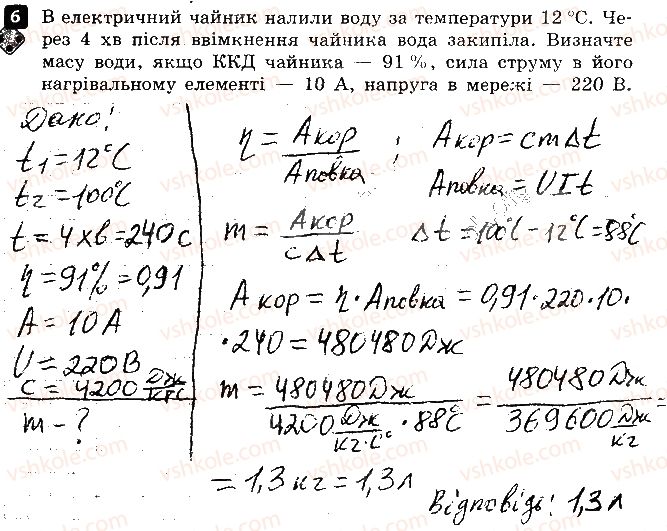 6 В електричний чайник налили воду за температури 12 °C. Че-
рез 4 хв після ввімкнення чайника вода закипіла. Визначте
масу води, якщо ККД чайника — 91 %, сила струму в його
нагрівальному елементі — 10 А, напруга в мережі — 220 В.
Дано:
t₁ = 12°C
t₂ = 100°C
t = 4 хв = 240 с
η = 91% = 0,91
A = 10 A
U = 220 В
c = 4200 Дж/кг°C
m - ?
η = Aкор/Aповна ; Aкор = cmΔt
Aповна = UIt
m = Aкор/cΔt Δt = 100°C - 12°C = 88°C
Aкор = η · Aповна = 0,91 · 220 · 10 ·
· 240 = 480480 Дж
m = 480480 Дж/4200 Дж/кг·C° · 88°C = 480480 Дж/369600 Дж/кг =
= 1,3 кг = 1,3 л
Відповідь: 1,3 л
vshkole.com